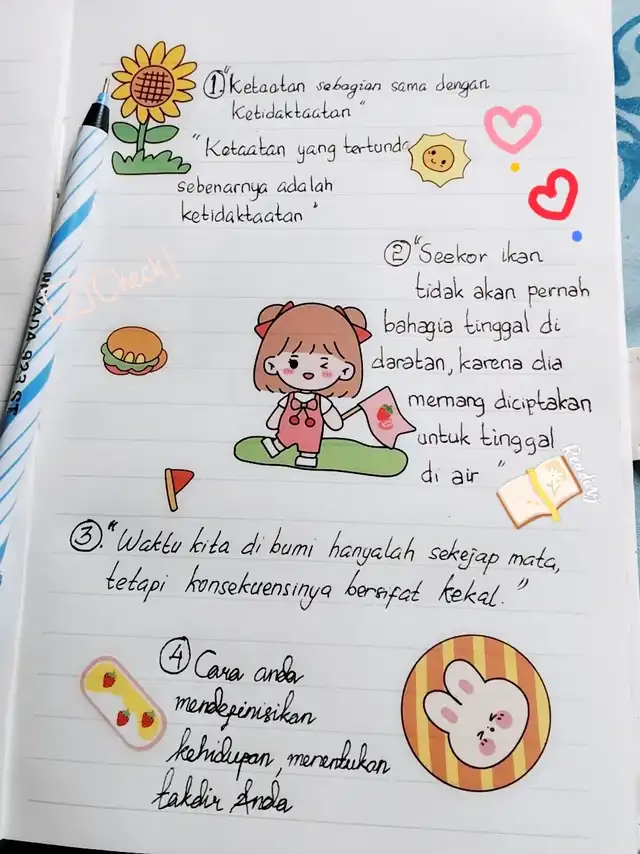 ① "Ketaatan sebagian sama dengan
Ketidaktaatan"
"Ketaatan yang tertunda
sebenarnya adalah
ketidaktaatan"
② "Seekor ikan
tidak akan pernah
bahagia tinggal di
daratan, karena dia
memang diciptakan
untuk tinggal
di air"
③. "Waktu kita di bumi hanyalah sekejap mata,
tetapi konsekuensinya bersifat kekal."
④ Cara anda
mendefinisikan
kehidupan, menentukan
takdir Anda
Check!
NEVADA 923 ST